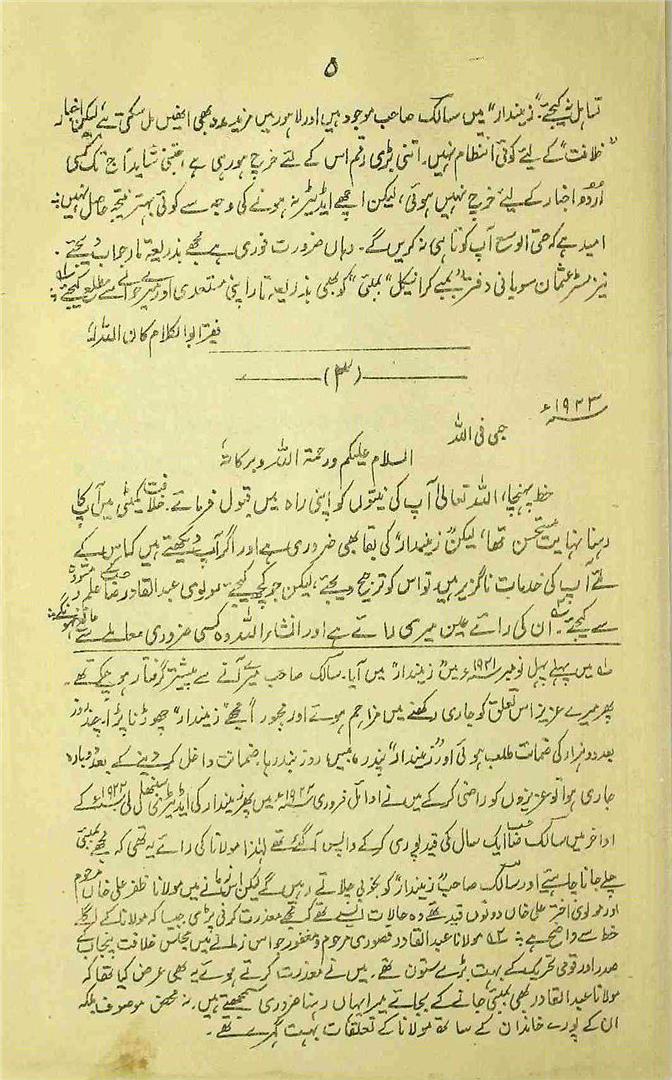 ۵
تساہل نہ کیجئے۔ "زمیندار" میں سالک صاحب موجود ہیں، اور لاہور میں مزید مدد بھی انہیں مل سکتی ہے، لیکن اخبار
"خلافت" کے لئے کوئی انتظام نہیں۔ اتنی بڑی رقم اس کے لئے خرچ ہو رہی ہے، جتنی شاید آج تک کسی
اُردو اخبار کے لئے خرچ نہیں ہوئی، لیکن اچھے ایڈیٹر نہ ہونے کی وجہ سے کوئی بہتر نتیجہ حاصل نہیں۔
امید ہے کہ حتی الوسع آپ کوتاہی نہ کریں گے۔ وہاں ضرورت فوری ہے مجھے بذریعہ تار جواب دیجئے۔
نیز مسٹر عثمان سوبانی دفتر "بمبے کرانیکل" بمبئی "کو بھی بذریعہ تار اپنی مستعدی اور سے مطلع کیجئے
فقیر ابوالکلام کان اللہ لہٗ
(۳)
۱۹۲۳ء
حبی فی اللہ
السلام علیکم ورحمۃ اللہ وبرکاتہٗ
خط پہنچا، اللہ تعالیٰ آپ کی نیتوں کو اپنی راہ میں قبول فرمائے۔ خلافت کمیٹی میں آپ کا
رہنا نہایت مستحسن تھا، لیکن "زمیندار" کی بقا بھی ضروری ہے اور اگر آپ دیکھتے ہیں کہ اس کے
لئے آپ کی خدمات ناگزیر ہیں تو اس کو ترجیح دیجئے، لیکن جو کچھ کیجئے مولوی عبدالقادر صاحب کے علم و مشورہ
سے کیجئے۔ ان کی رائے عین میری رائے ہے اور انشاء اللہ وہ کسی ضروری معاملے سے
۱ میں پہلے پہل نومبر ۱۹۲۱ء میں "زمیندار" میں آیا۔ سالک صاحب میرے آنے سے پیشتر گرفتار ہو چکے تھے۔
پھر میرے عزیز اس تعلق کو جاری رکھنے میں مزاحم ہوئے اور مجبوراً مجھے "زمیندار" چھوڑنا پڑا۔ چند روز
بعد دو ہزار کی ضمانت طلب ہوئی اور "زمیندار" پندرہ بیس روز بند رہا۔ ضمانت داخل کر دینے کے بعد دوبارہ
جاری ہوا تو عزیزوں کو راضی کر کے میں نے اوائل فروری ۱۹۲۲ء میں پھر زمیندار کی ایڈیٹری سنبھال لی۔ ۱۹۲۲ء کے
اواخر میں سالک صاحب ایک سال کی قید پوری کر کے واپس آ گئے تھے لہٰذا مولانا کی رائے یہ تھی کہ مجھے بمبئی
چلے جانا چاہیئے اور سالک صاحب "زمیندار" کو بخوبی چلاتے رہیں گے لیکن اس زمانے میں مولانا ظفر علی خاں مرحوم
اور مولوی اختر علی خاں دونوں قید تھے وہ حالات ایسے تھے کہ مجھے معذرت کرنی پڑی، جیسا کہ مولانا کے اگلے
خط سے واضح ہے۔ ۲ مولانا عبدالقادر قصوری مرحوم و مغفور جو اس زمانے میں مجلس خلافت پنجاب کے
صدر اور قومی تحریک کے بہت بڑے ستون تھے۔ میں نے معذرت کرتے ہوئے یہ بھی عرض کیا تھا کہ
مولانا عبدالقادر بھی بمبئی جانے کے بجائے میرا یہاں رہنا ضروری سمجھتے ہیں۔ نہ محض موصوف بلکہ
ان کے پورے خاندان کے ساتھ مولانا کے تعلقات بہت گہرے تھے۔